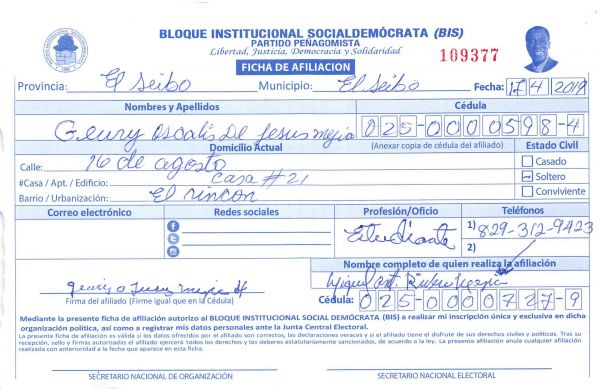 BLOQUE INSTITUCIONAL SOCIALDEMÓCRATA (BIS)
PARTIDO PEÑAGOMISTA
Libertad, Justicia, Democracia y Solidaridad
FICHA DE AFILIACION
109377
Provincia: El Seibo Municipio: El Seibo Fecha: 17 4 2019
Nombres y Apellidos Cédula
Geury oscalis De Jesus mejia 025-0000598-4
Domicilio Actual (Anexar copia de cédula del afiliado) Estado Civil
Calle: 16 de agosto Casado
#Casa / Apt. / Edificio: Casa #21 Soltero
Barrio / Urbanización: El rincon Conviviente
Correo electrónico Redes sociales Profesión/Oficio Teléfonos
Estudiante 1) 829-312-9423
2)
Nombre completo de quien realiza la afiliación
Miguel
Firma del afiliado (Firme igual que en la Cédula) Cédula: 025-0000727-9
Mediante la presente ficha de afiliación autorizo al BLOQUE INSTITUCIONAL SOCIAL DEMÓCRATA (BIS) a realizar mi inscripción única y exclusiva en dicha
organización política, así como a registrar mis datos personales ante la Junta Central Electoral.
La presente ficha de afiliación es válida si los datos ofrecidos por el afiliado son correctos, las declaraciones veraces y si el afiliado tiene el disfrute de sus derechos civiles y políticos. Tras su
recepción, sello y firmas autorizadas el afiliado ejercerá todos los derechos y los deberes estatutariamente sancionados, de acuerdo a la ley. La presente afiliación anula cualquier afiliación
realizada con anterioridad a la fecha que aparece en esta ficha.
SECRETARIO NACIONAL DE ORGANIZACIÓN SECRETARIO NACIONAL ELECTORAL